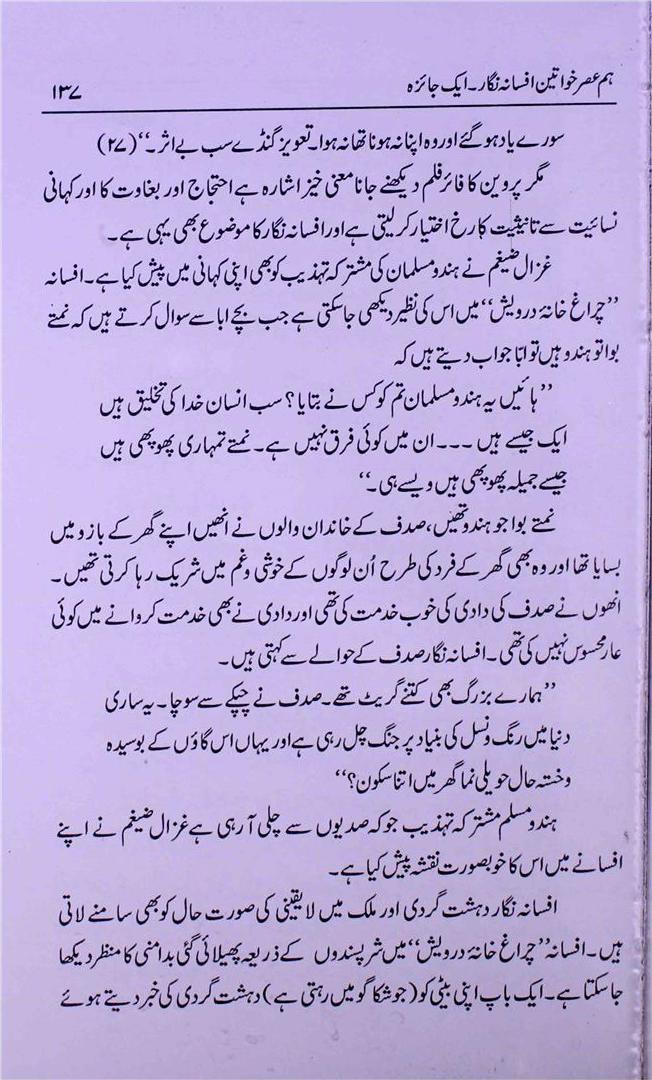 ہم عصر خواتین افسانہ نگار۔ ایک جائزہ ۱۳۷
سورے یاد ہوگئے اور وہ اپنا نہ ہونا تھا نہ ہوا۔ تعویز گنڈے سب بے اثر۔‘‘ (۲۷)
مگر پروین کا فائر فلم دیکھنے جانا معنی خیز اشارہ ہے احتجاج اور بغاوت کا اور کہانی
نسائیت سے تانیثیت کا رخ اختیار کر لیتی ہے اور افسانہ نگار کا موضوع بھی یہی ہے۔
غزال ضیغم نے ہندو مسلمان کی مشترکہ تہذیب کو بھی اپنی کہانی میں پیش کیا ہے۔ افسانہ
’’چراغ خانۂ درویش‘‘ میں اس کی نظیر دیکھی جاسکتی ہے جب بچے ابا سے سوال کرتے ہیں کہ نمتے
بوا تو ہندو ہیں تو ابّا جواب دیتے ہیں کہ
’’ہائیں یہ ہندو مسلمان تم کو کس نے بتایا؟ سب انسان خدا کی تخلیق ہیں
ایک جیسے ہیں ۔۔۔ ان میں کوئی فرق نہیں ہے۔ نمتے تمہاری پھوپھی ہیں
جیسے جمیلہ پھوپھی ہیں ویسے ہی۔‘‘
نمتے بوا جو ہندو تھیں، صدف کے خاندان والوں نے انھیں اپنے گھر کے بازو میں
بسایا تھا اور وہ بھی گھر کے فرد کی طرح اُن لوگوں کے خوشی و غم میں شریک رہا کرتی تھیں۔
انھوں نے صدف کی دادی کی خوب خدمت کی تھی اور دادی نے بھی خدمت کروانے میں کوئی
عار محسوس نہیں کی تھی۔ افسانہ نگار صدف کے حوالے سے کہتی ہیں۔
’’ہمارے بزرگ بھی کتنے گریٹ تھے۔ صدف نے چپکے سے سوچا۔ یہ ساری
دنیا میں رنگ و نسل کی بنیاد پر جنگ چل رہی ہے اور یہاں اس گاؤں کے بوسیدہ
و خستہ حال حویلی نما گھر میں اتنا سکون؟‘‘
ہندو مسلم مشترکہ تہذیب جو کہ صدیوں سے چلی آرہی ہے غزال ضیغم نے اپنے
افسانے میں اس کا خوبصورت نقشہ پیش کیا ہے۔
افسانہ نگار دہشت گردی اور ملک میں لایقینی کی صورت حال کو بھی سامنے لاتی
ہیں۔ افسانہ ’’چراغ خانۂ درویش‘‘ میں شر پسندوں کے ذریعہ پھیلائی گئی بدامنی کا منظر دیکھا
جاسکتا ہے۔ ایک باپ اپنی بیٹی کو (جو شکاگو میں رہتی ہے) دہشت گردی کی خبر دیتے ہوئے